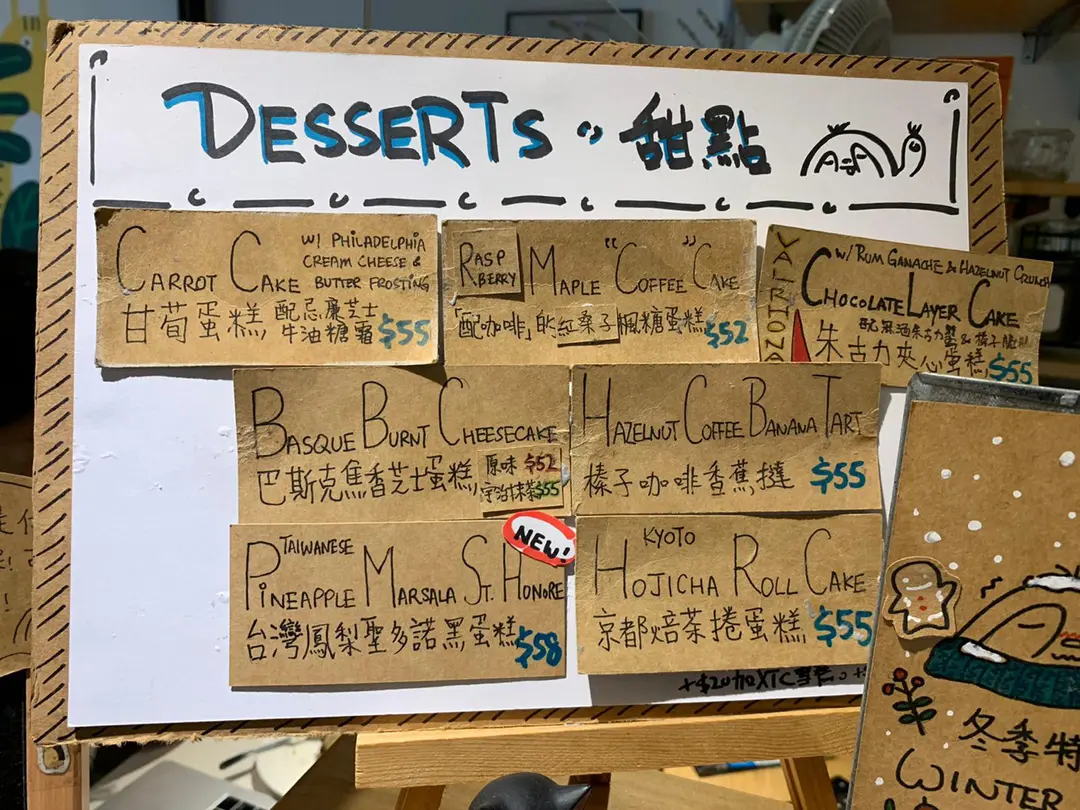 DESSERTS 甜點
CARROT CAKE W/ PHILADELPHIA
CREAM CHEESE &
BUTTER FROSTING
甘荀蛋糕 配忌廉芝士
牛油糖霜 $55
RASPBERRY MAPLE "COFFEE" CAKE
「配咖啡」的紅桑子楓糖蛋糕 $52
VALRHONA
W/ RUM GANACHE & HAZELNUT CRUNCH
CHOCOLATE LAYER CAKE
朱古力夾心蛋糕 $55
BASQUE BURNT CHEESECAKE
巴斯克焦香芝士蛋糕 原味 $52
宇治抹茶 $55
HAZELNUT COFFEE BANANA TART
榛子咖啡香蕉撻 $55
NEW!
TAIWANESE
PINEAPPLE MARSALA ST. HONORE
台灣鳳梨聖多諾黑蛋糕 $58
KYOTO
HOJICHA ROLL CAKE
京都焙茶捲蛋糕 $55
冬季特
WINTER